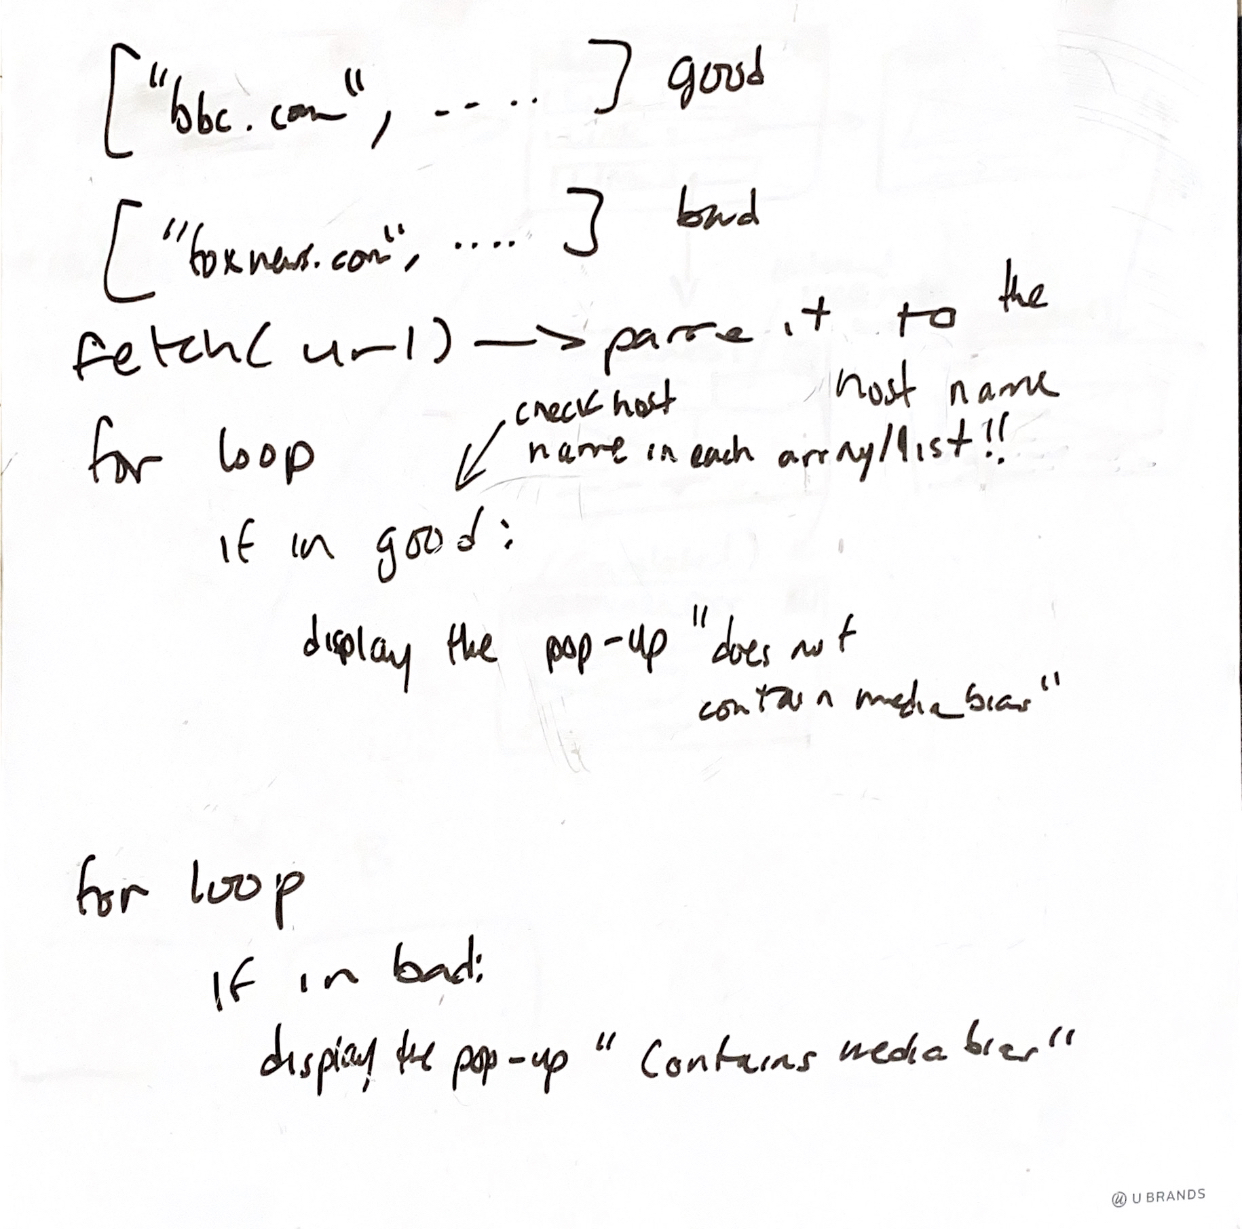 ["bbc.com", - - . . . ] good
["foxnews.com", .... ] bad
fetch(url) —> parse it to the
host name
check host
for loop
name in each array/list!!
if in good:
display the pop-up "does not
contain media bias"
for loop
If in bad:
display the pop-up "Contains media bias"
U BRANDS